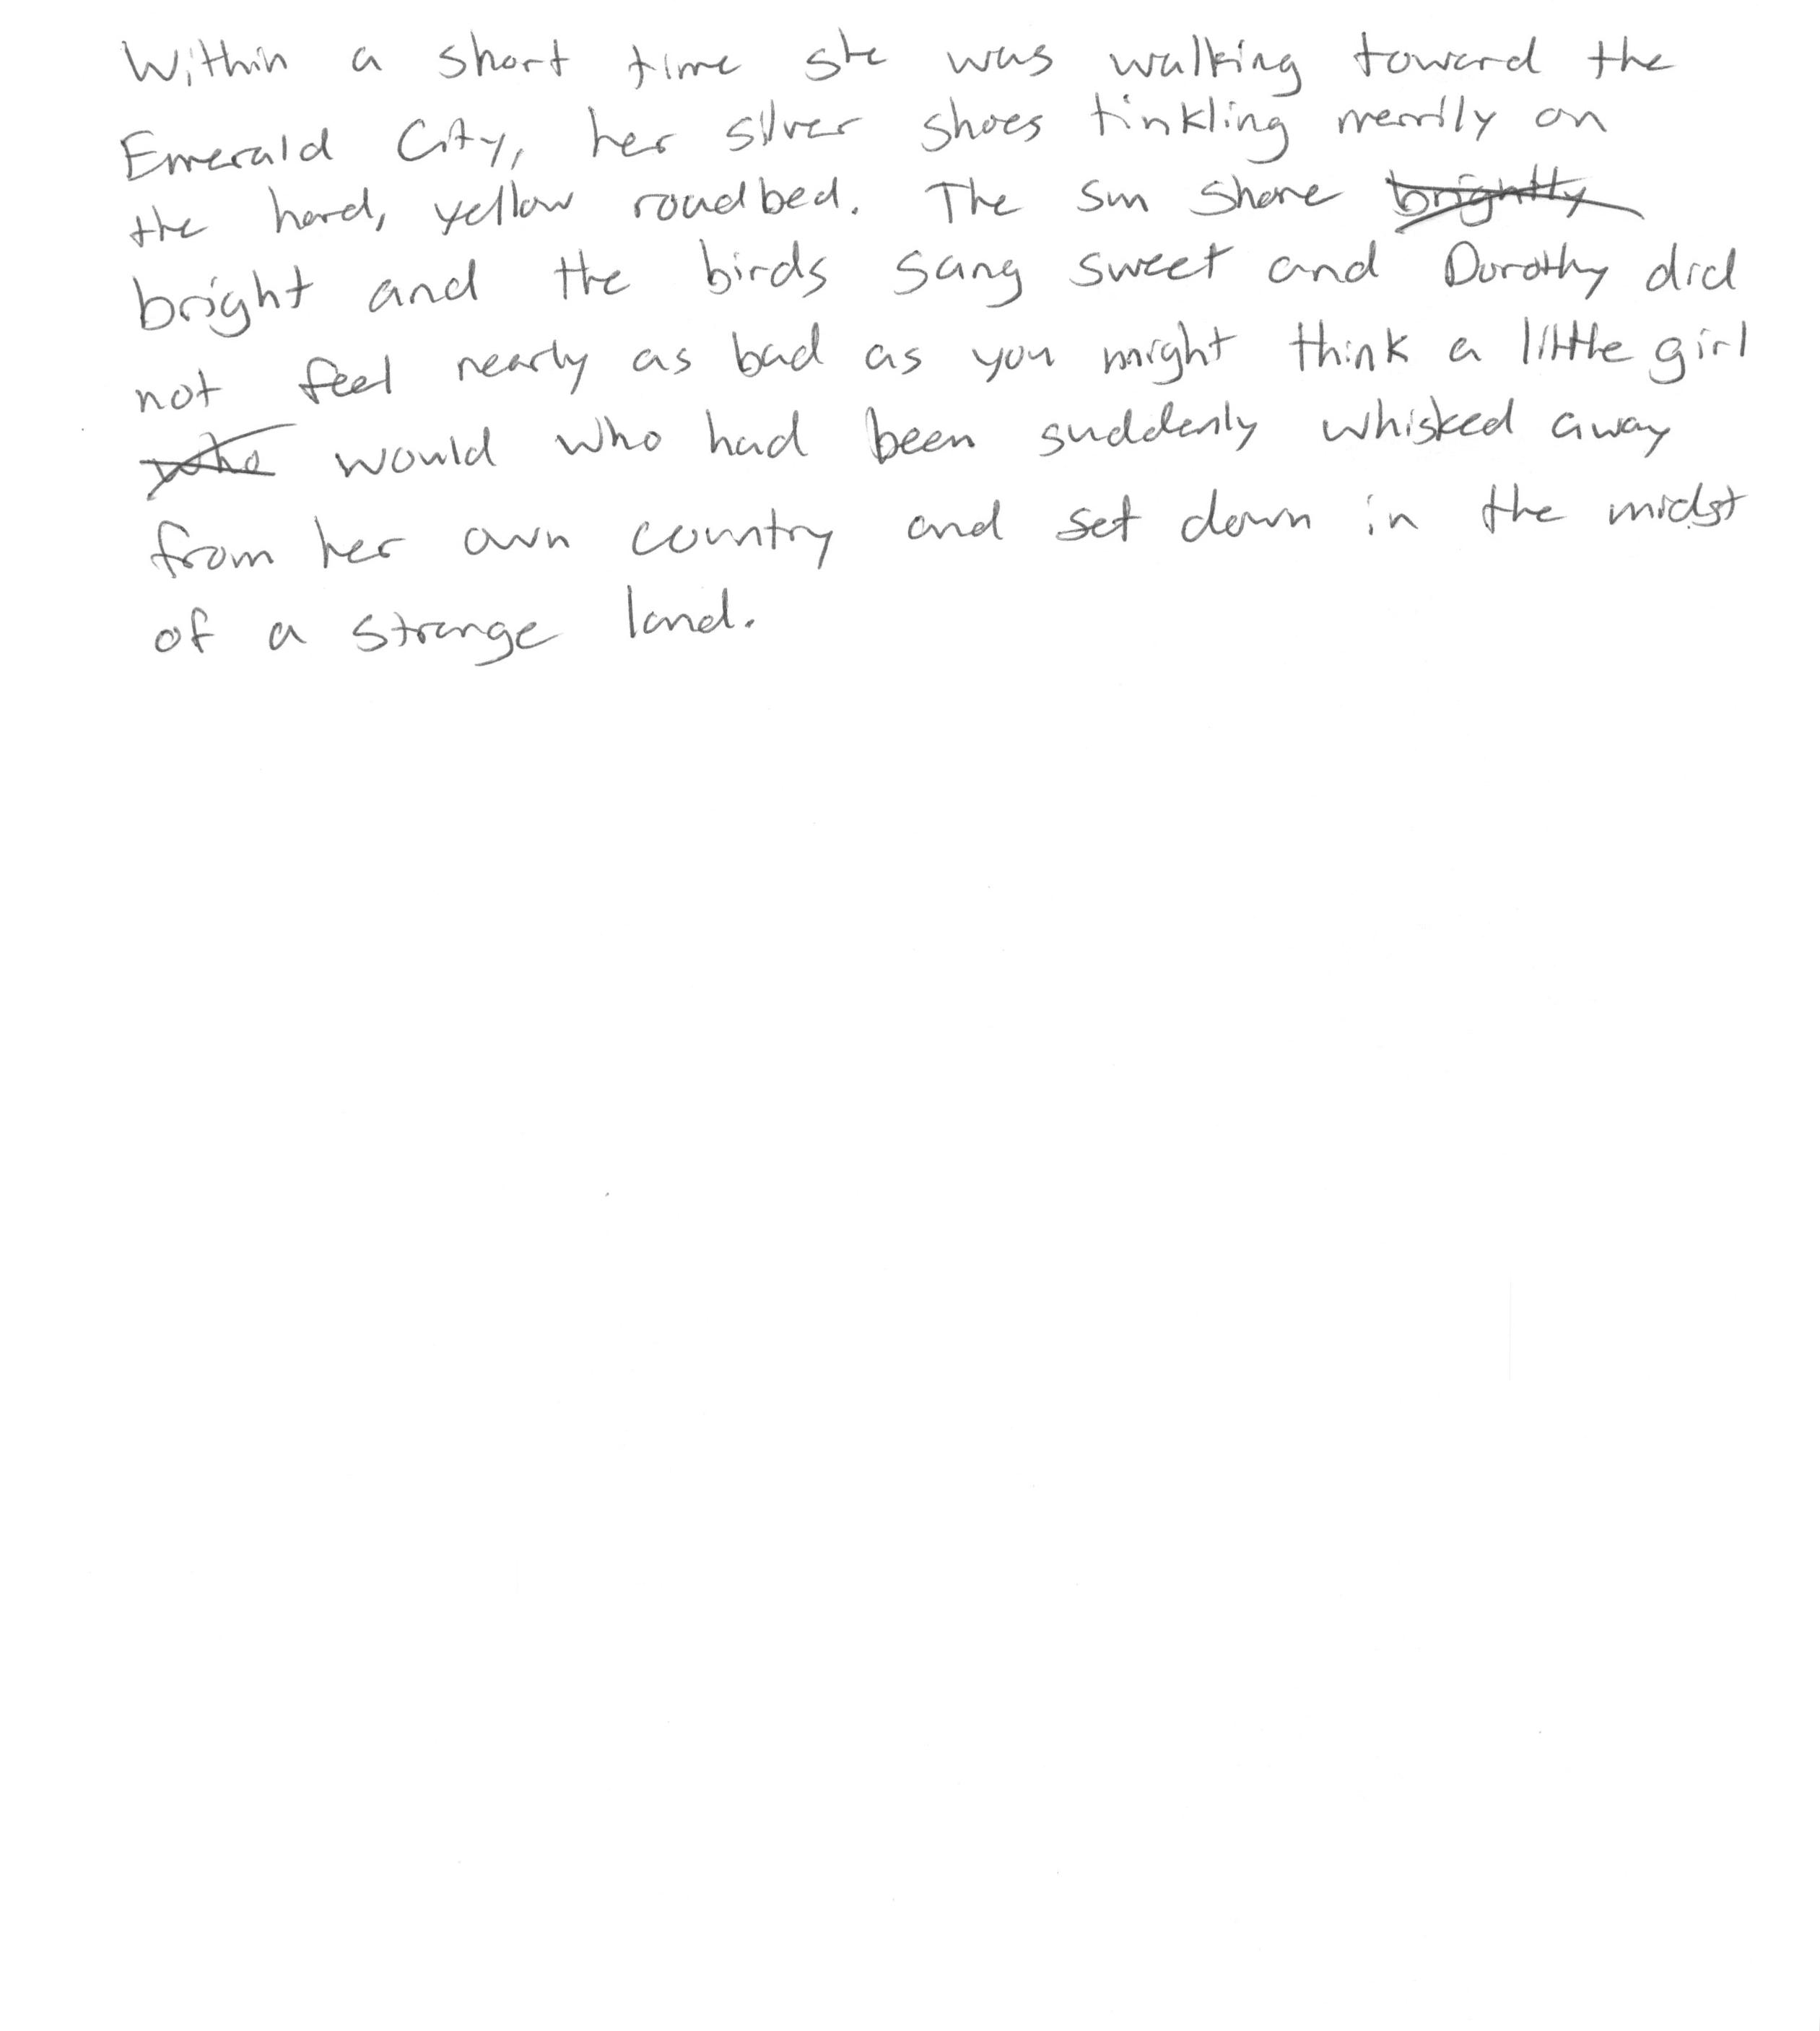 Within a short time she was walking toward the
Emerald City, her silver shoes tinkling merrily on
the hard, yellow roadbed. The sun shone brightly
bright and the birds sang sweet and Dorothy did
not feel nearly as bad as you might think a little girl
who would who had been suddenly whisked away
from her own country and set down in the midst
of a strange land.